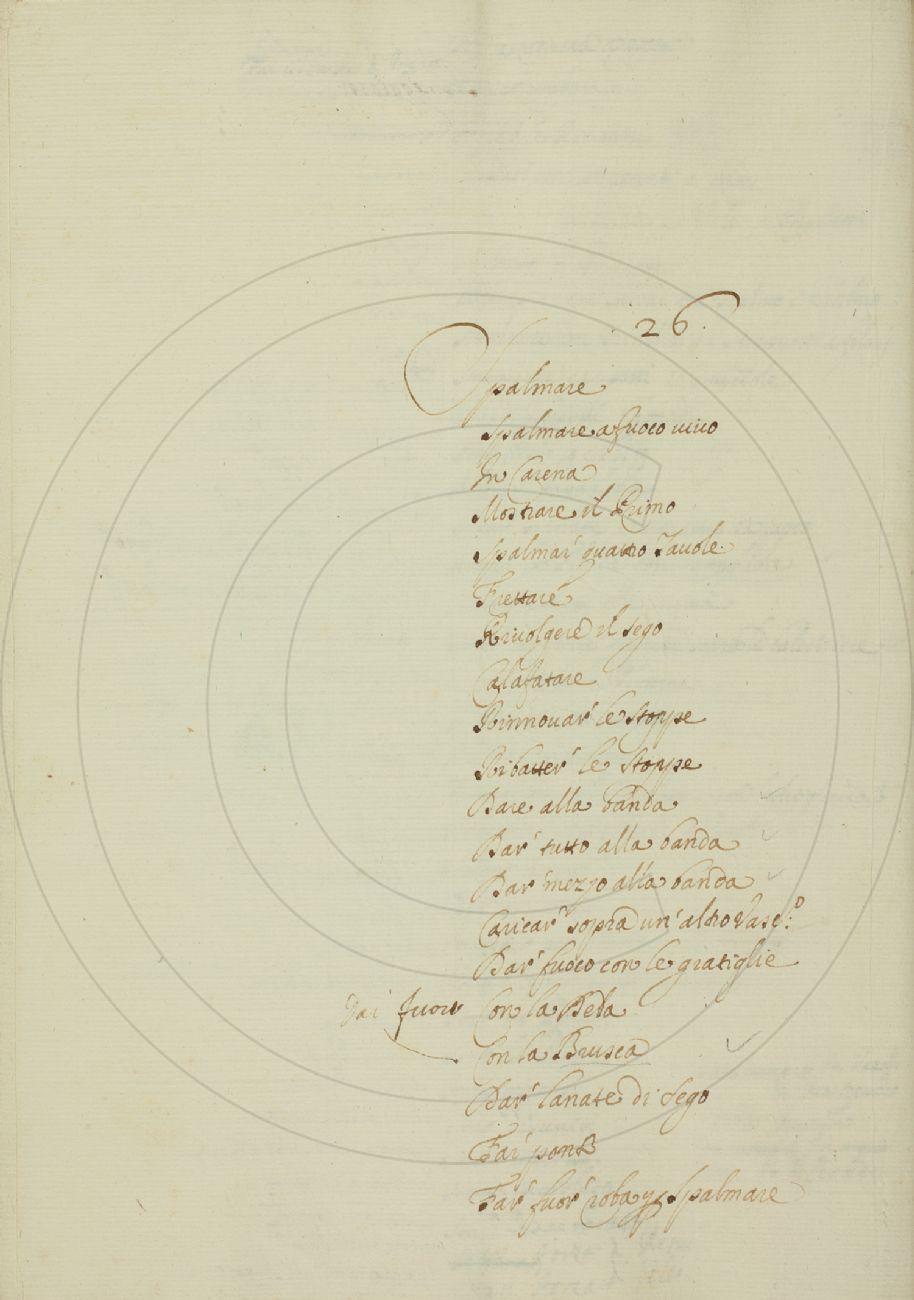 26.
Spalmare
Spalmare a fuoco vivo
In Carena
Mostrare il Primo
Spalmar' quatro Tauole
Frettare
Riuolgere il sego
Calafatare
Rinnouar' le stoppe
Ribatter' le stoppe
Dare alla banda
Dar' tutto alla banda
Dar' mezzo alla banda
Caricar' sopra un' altro Vasc:o
Dar' fuoco con le giatiglie
Dar' fuoco Con la
Con la Brusca
Dar' lanate di sego
Far' ponte
Far' fuor' roba p Spalmare